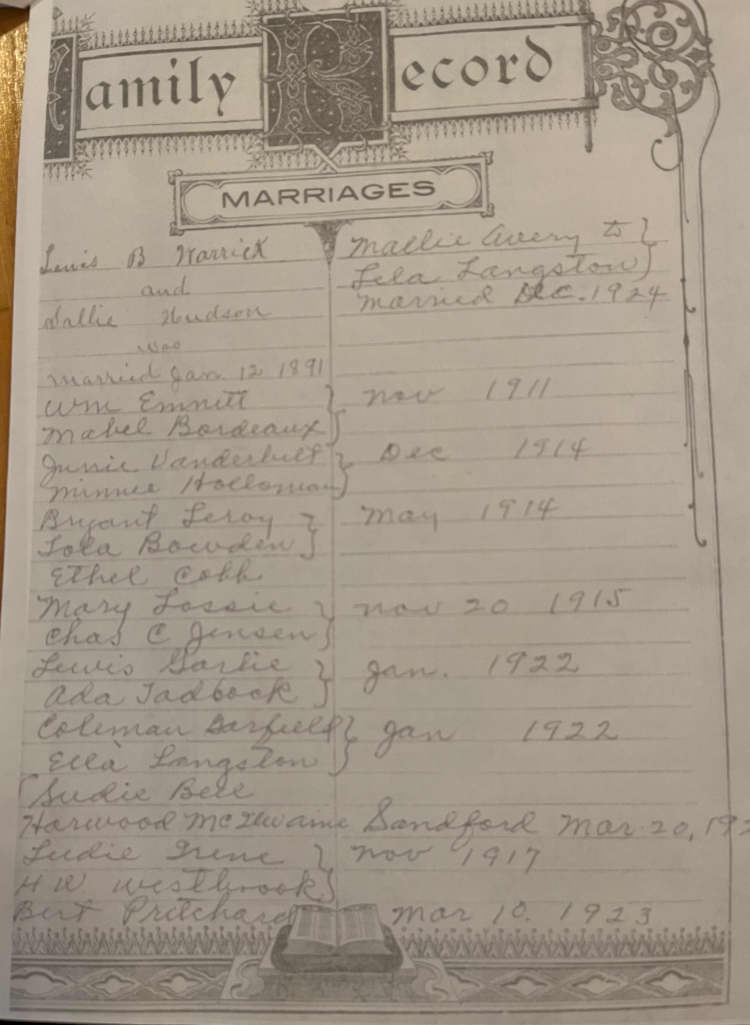 Family Record
MARRIAGES
Lewis B Warrick
and
Sallie Hudson
was
married Jan 12 1891
Mallie Avery to }
Lela Langston }
married Dec. 1924
Wm Emmett } Nov 1911
Mabel Bordeaux }
Junie Vanderbilt } Dec 1914
Minnie Holloman }
Bryant Leroy } May 1914
Lola Bowden }
Ethel Cobb
Mary Lossie } Nov 20 1915
Chas C Jensen }
Lewis } Jan. 1922
Ada Tadlock }
Coleman Garfield } Jan 1922
Ella Langston }
Sudie Bell
Harwood Sandford Mar. 20, 192
Ludie Irene } Nov 1917
H W Westbrook }
Bert Pritchard Mar 10. 1923